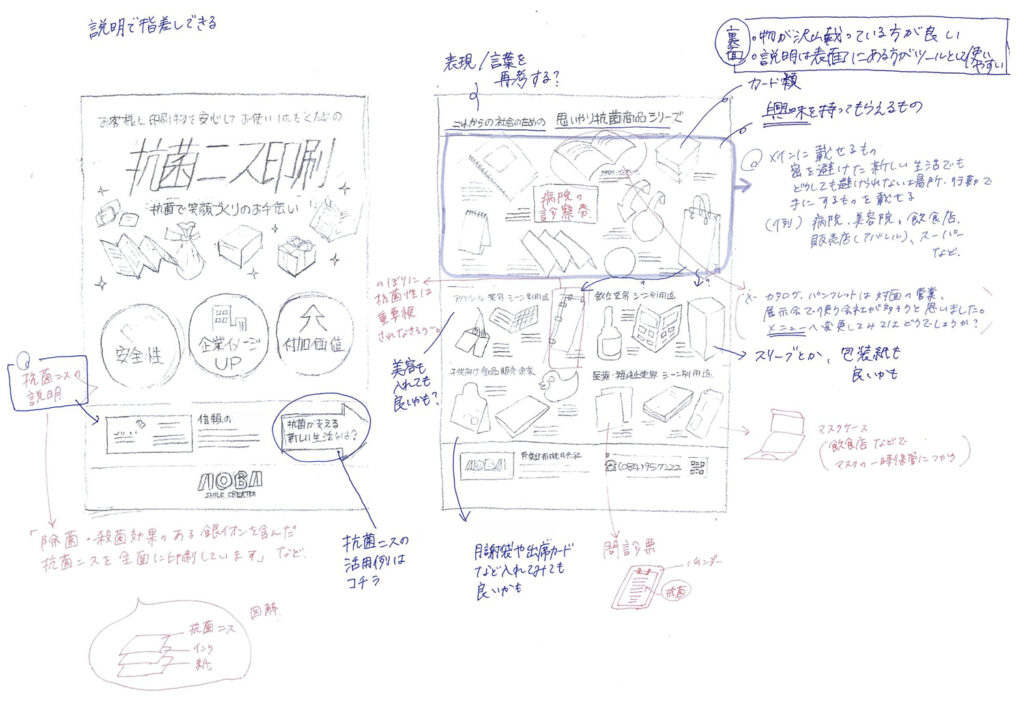 説明で指差しできる
お客様に印刷物で安心してお使いいただくための
抗菌ニス印刷
抗菌で笑顔づくりのお手伝い
安全性
企業イメージ
UP
付加価値
抗菌ニスの
説明
信頼の
抗菌が支える
新しい生活
AOBA
SMILE CREATER
「除菌・殺菌効果のある銀イオンを含んだ
抗菌ニスを全面に印刷しています」など
抗菌ニスの
活用例は
コチラ
図解
抗菌ニス
インク
紙
表現/言葉を
再考する?
裏面
○物が沢山載っている方が良い
○説明は表面にある方がツールとして使い
やすい
カード類
興味を持ってもらえるもの
これからの社会のための 思いやり抗菌商品シリーズ
病院の
診察券
メインに載せるもの
密を避けた新しい生活でも
どうしても避けられない場所、行動で
手にするものを載せる
(例) 病院、美容院、飲食店、
販売店(アパレル)、スーパー
など、
のぼりに
抗菌性は
重要視
されなさそう。
アパレル業界 シーン別用途
飲食業界 シーン別用途
カタログ、パンフレットは対面の営業、
展示会で使う会社が多そうと思いました。
メニューへ変更してみてはどうでしょうか?
スリーブとか、包装紙も
良いかも
美容も
入れても
良いかも?
子供向け商品販売企業
医療・福祉業界 シーン別用途
マスクケース
(飲食店などで
マスクの一時保管につかう)
AOBA
☎(084)957222
月謝袋や出席カード
など入れてみても
良いかも
問診票
バインダー
抗菌